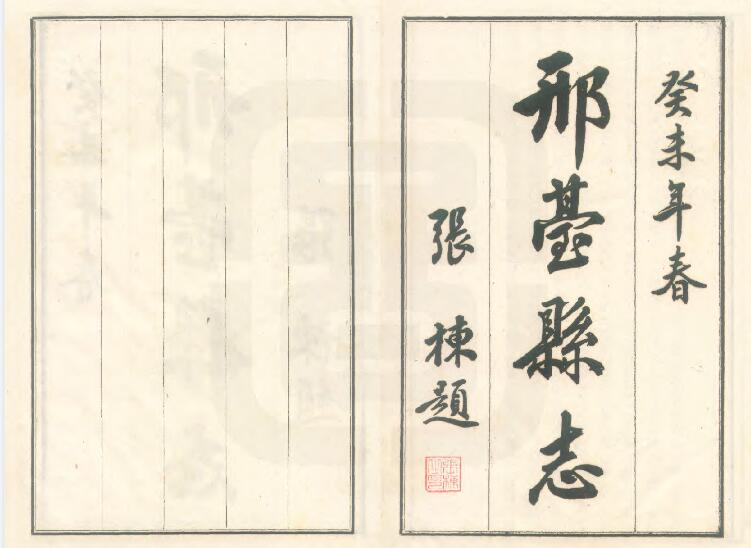 癸未年春
邢臺縣志
張棟題